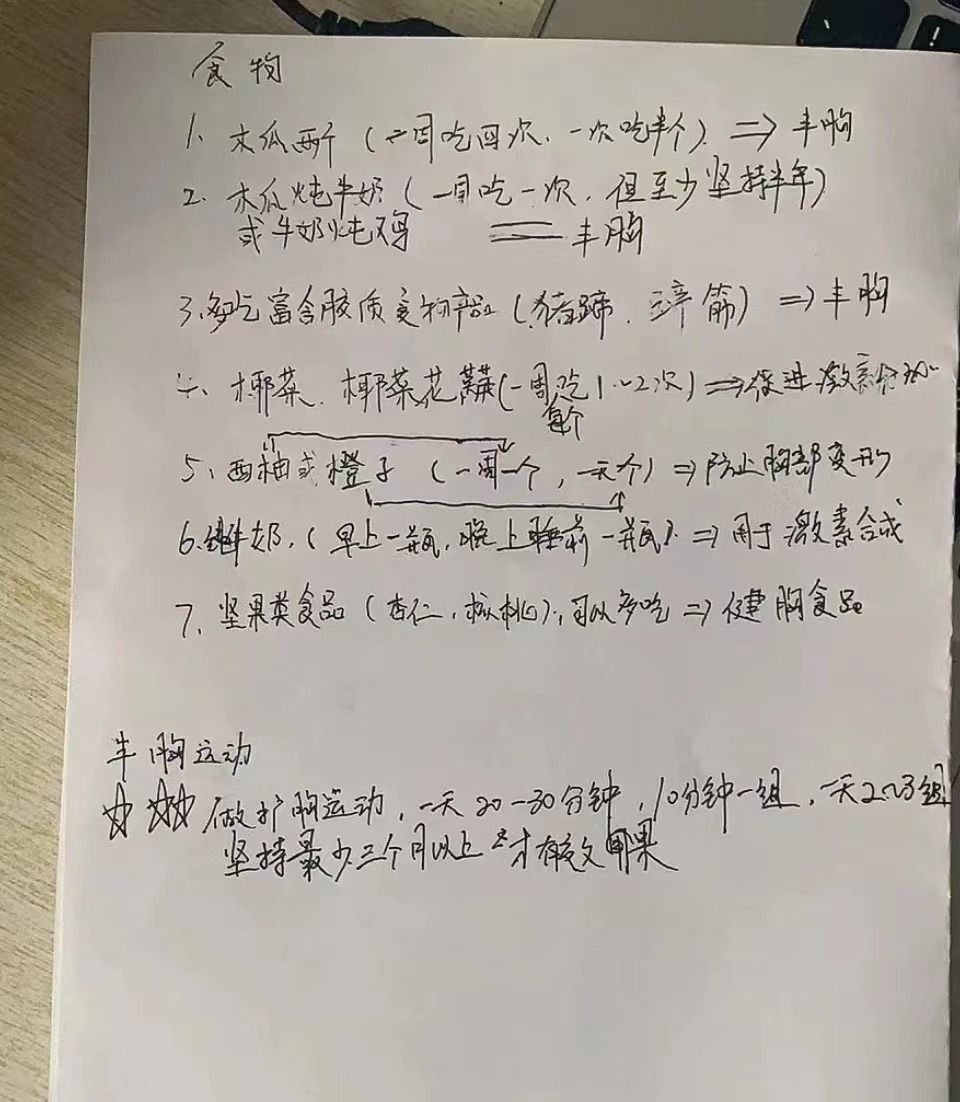 食物
1、木瓜两个(一周吃四次、一次吃半个) ⇒ 丰胸
2、木瓜炖牛奶(一周吃一次,但至少坚持半年)
或牛奶炖鸡 丰胸
3、多吃富含胶质食物 (猪蹄、蹄筋) ⇒ 丰胸
4、椰菜、椰菜花(一周吃1~2次) ⇒ 促进激素分泌
每个
5、西柚或橙子 (一周一个,一天个) ⇒ 防止胸部变形
6、牛奶,(早上一瓶,晚上睡前一瓶) ⇒ 用于激素合成
7、坚果类食品(杏仁,核桃),可以多吃 ⇒ 健胸食品
丰胸运动
☆☆☆ 做扩胸运动,一天20-30分钟,10分钟一组,一天2~3组
坚持最少三个月以上才有效果